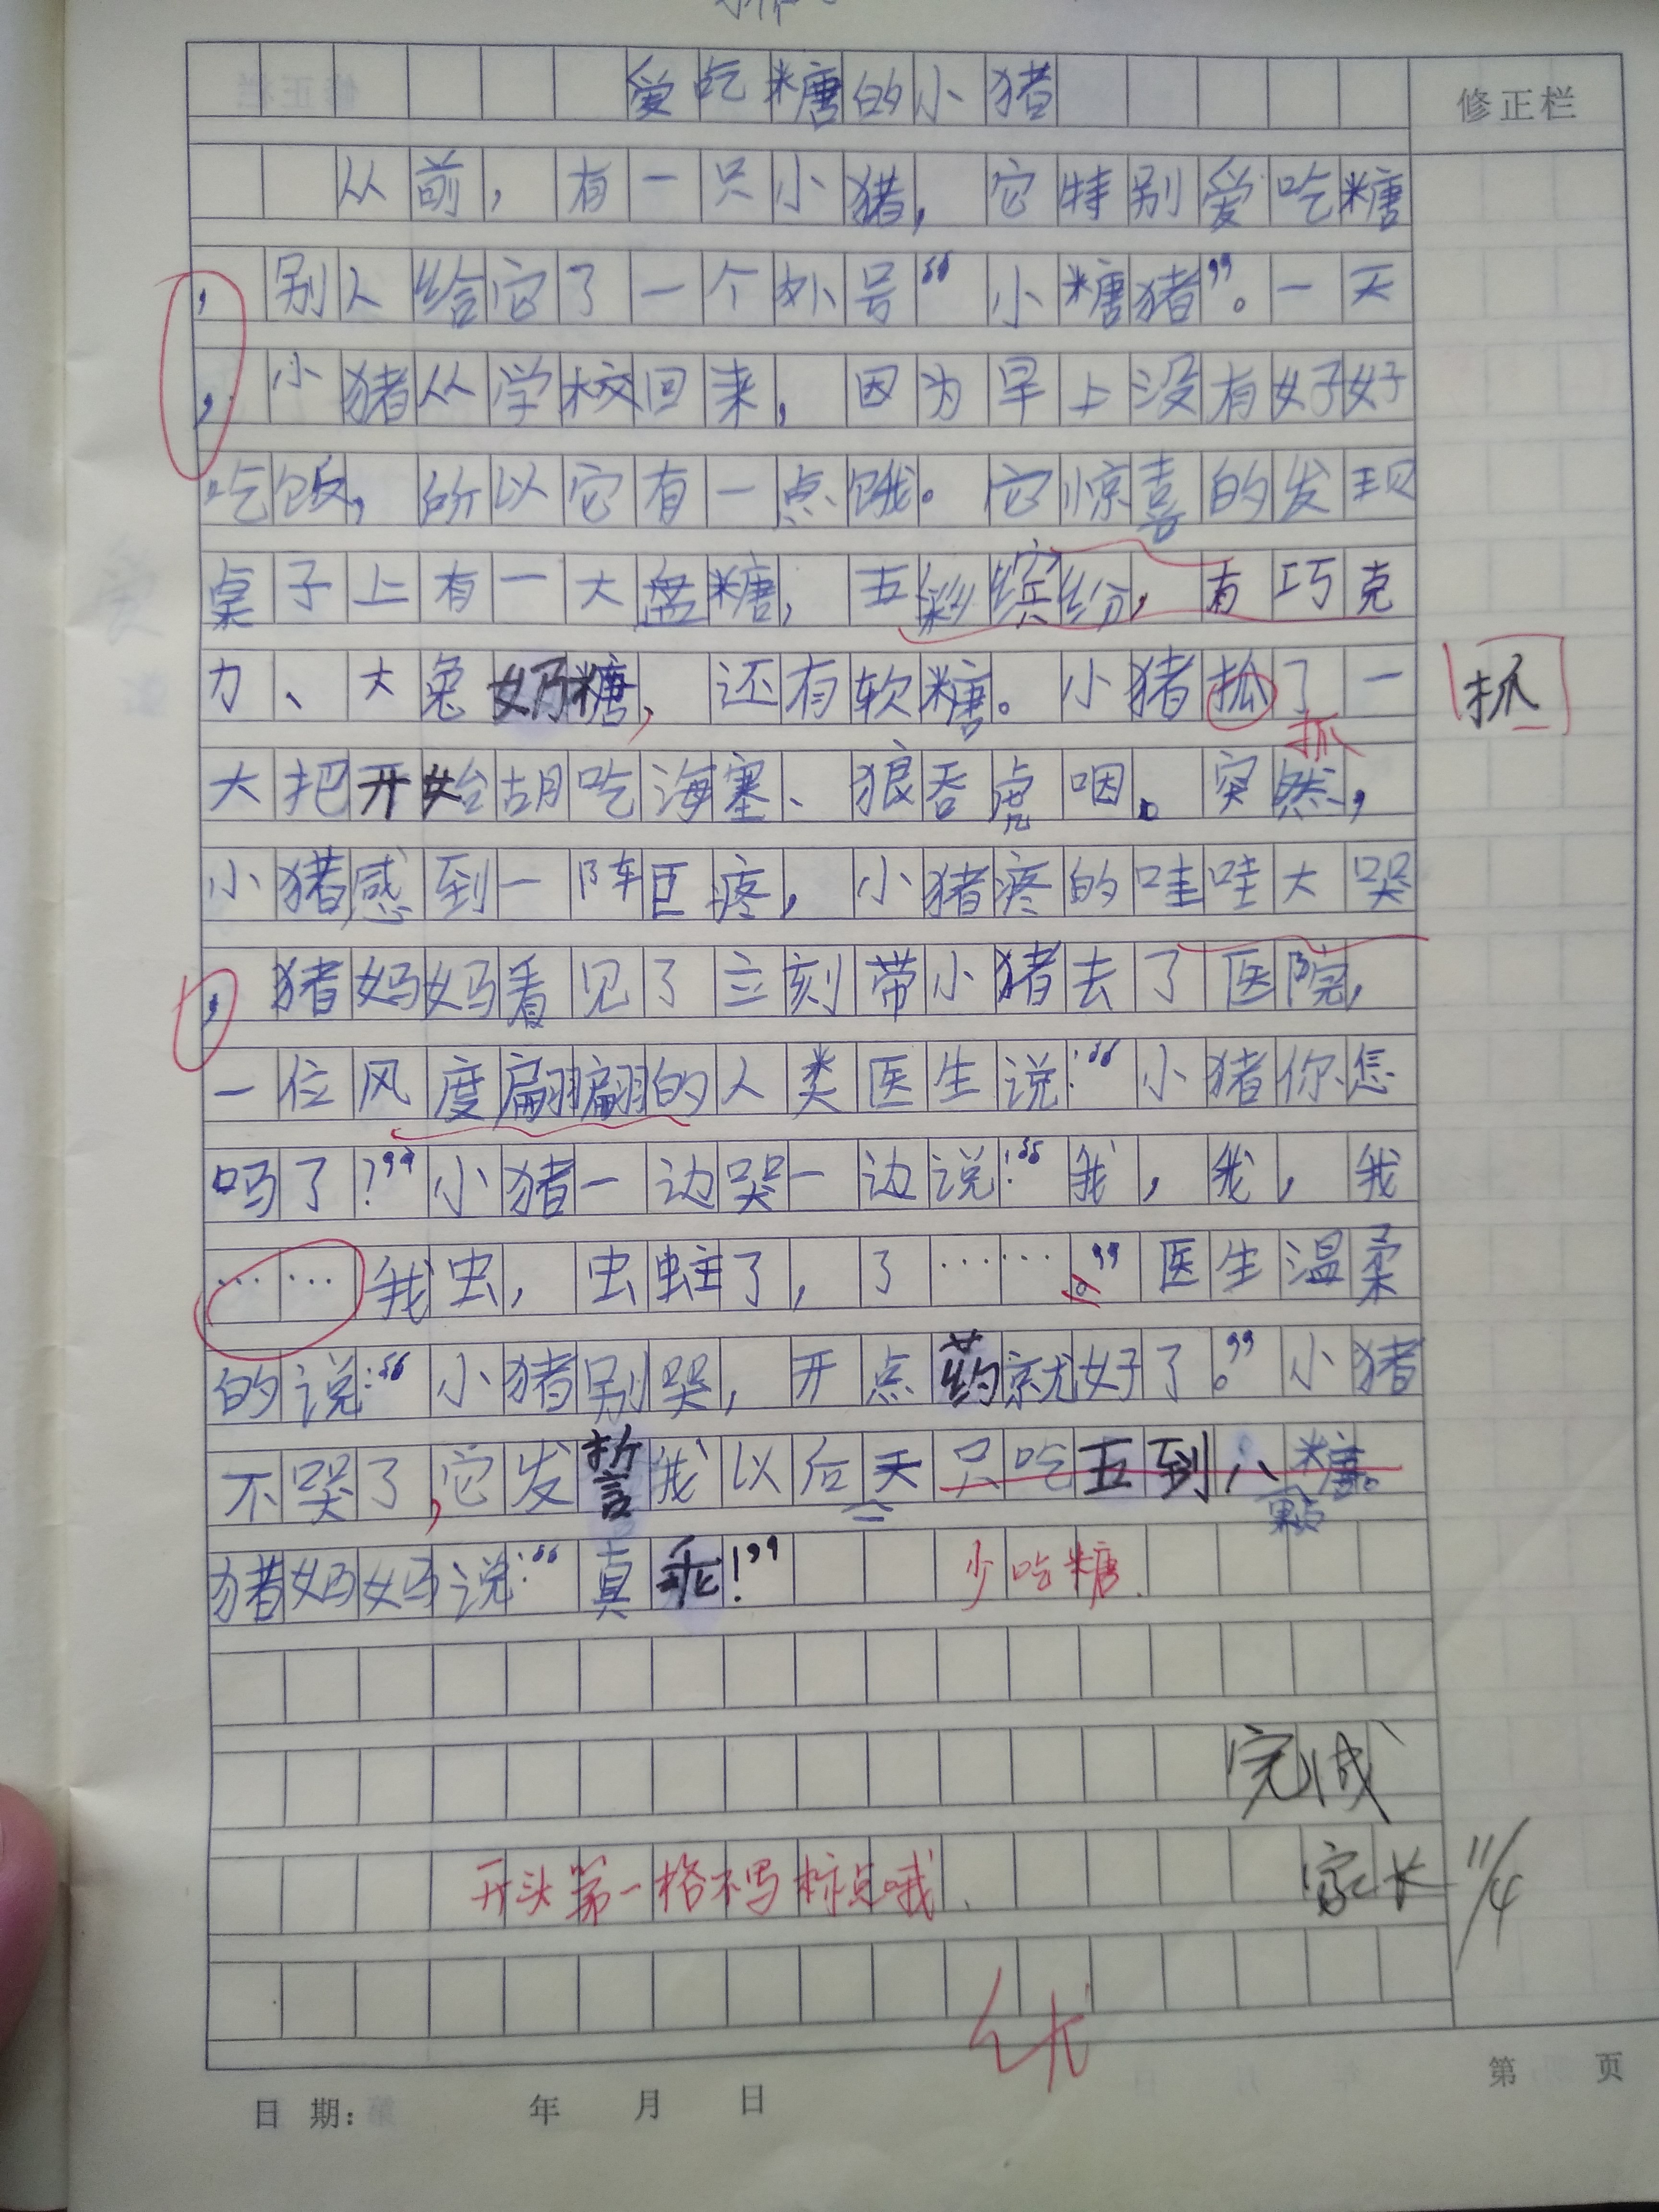 爱吃糖的小猪
修正栏
从前，有一只小猪，它特别爱吃糖
，别人给它了一个外号“小糖猪”。一天
，小猪从学校回来，因为早上没有好好
吃饭，所以它有一点饿。它惊喜的发现
桌子上有一大盘糖，五彩缤纷，有巧克
力、大兔奶糖，还有软糖。小猪抓了一
抓
抓
大把开始胡吃海塞、狼吞虎咽。突然，
小猪感到一阵巨疼，小猪疼的哇哇大哭
，猪妈妈看见了立刻带小猪去了医院，
一位风度翩翩的人类医生说：“小猪你怎
吗了？”小猪一边哭一边说：“我，我，我
……我虫，虫蛀了，了……。”医生温柔
的说：“小猪别哭，开点药就好了。”小猪
不哭了，它发誓我以后天只吃五到八糖。
颗
猪妈妈说：“真乖！”
少吃糖.
完成
开头第一格不写标点哦.
家长 11/4
优
日期： 年 月 日
第 页